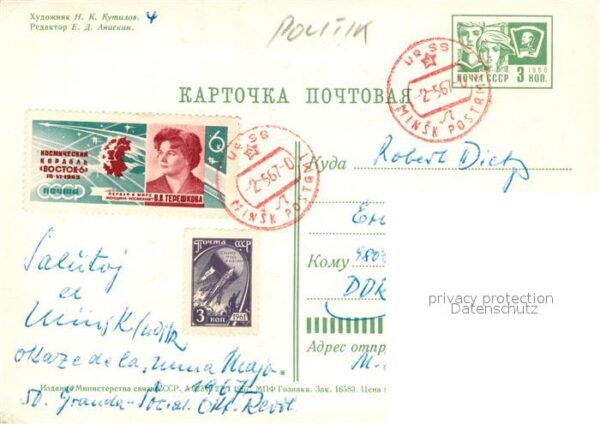 Художник Н. К. Кутилов. 4
Редактор Е. Д. Анискин.
Politik
ПОЧТА СССР 1966 3 КОП.
USSR
2-5.67-0
Л
MINSK POSTAMT
КАРТОЧКА ПОЧТОВАЯ
КОСМИЧЕСКИЙ
КОРАБЛЬ
"ВОСТОК-6"
16-VI-1963
СССР
ПОЧТА
ПЕРВАЯ В МИРЕ
ЖЕНЩИНА-КОСМОНАВТ
В.В. ТЕРЕШКОВА
6
USSR
2-5.67-0
Л
MINSK POSTAMT
Куда Robert Dietz
Кому 980
DDR
ПОЧТА СССР
3 КОП. 1961
privacy protection
Datenschutz
Адрес отпр
Salutoj
el
Minsk
okaze de la unua Majo
1967
Издание Министерства связи СССР. МПФ Гознака. Зак. 16583. Цена
50. Granda Social. Okt. Revol.